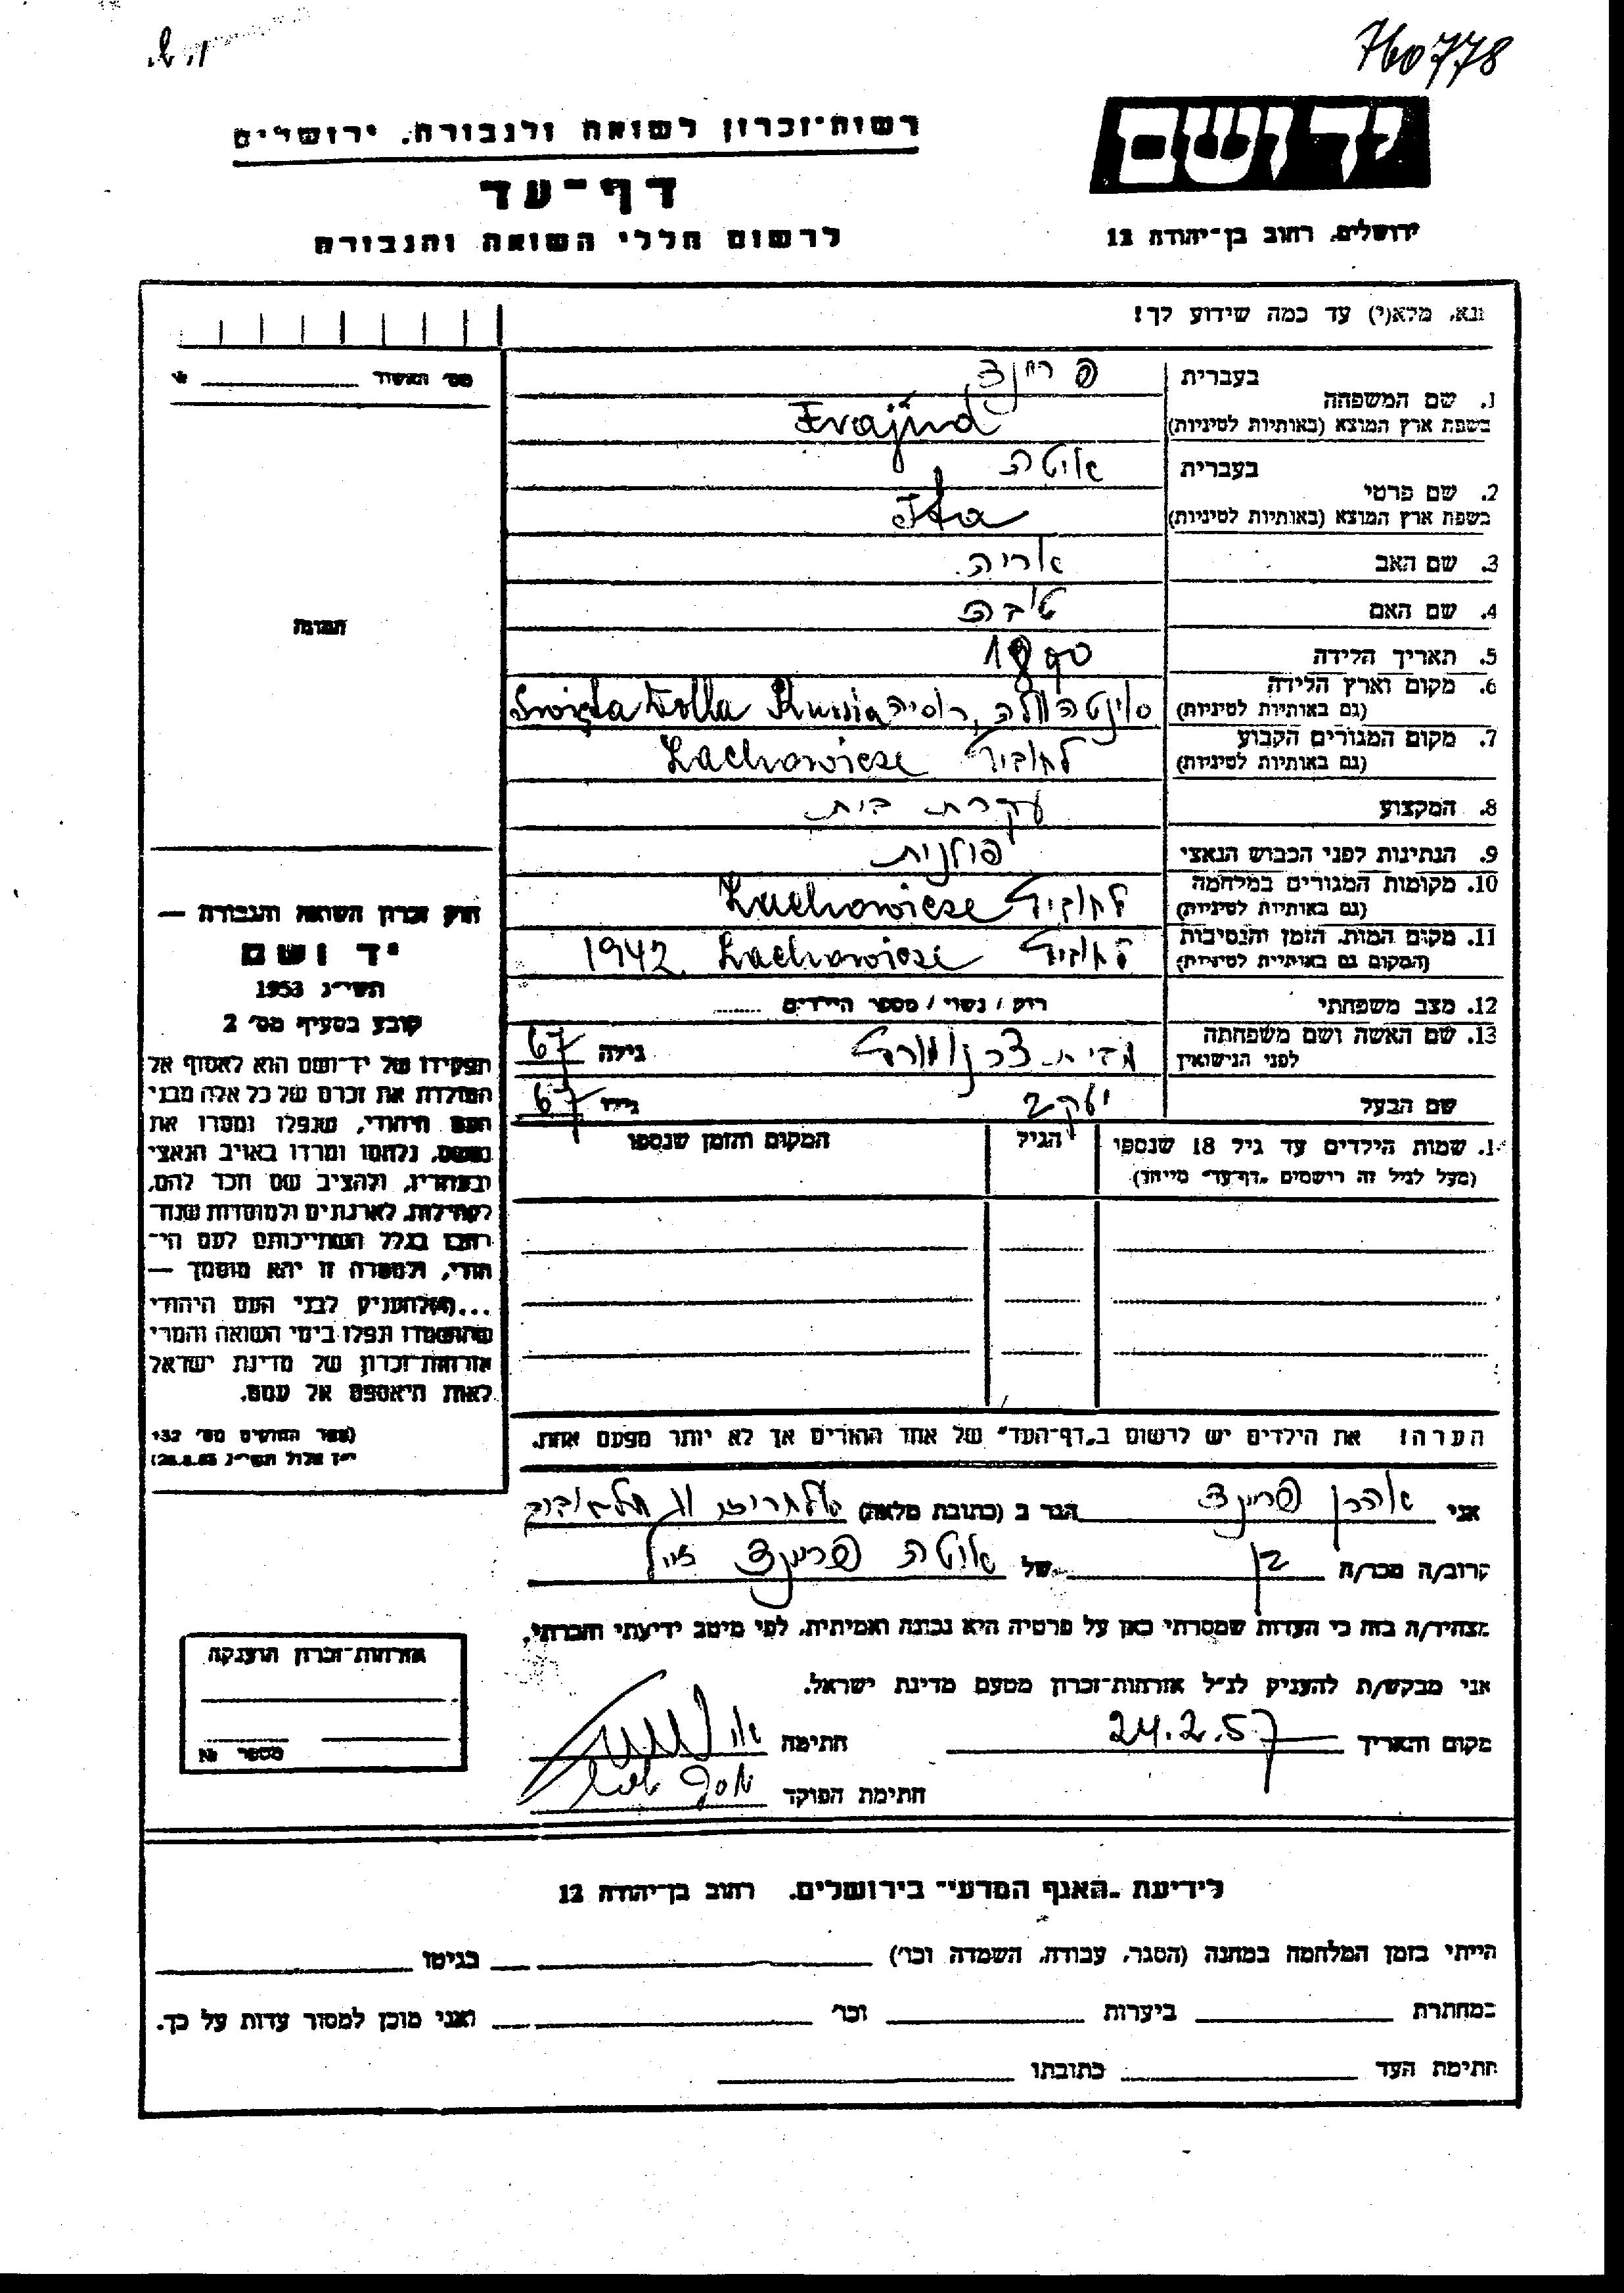 760778
יד ושם
רשות־זכרון לשואה ולגבורה, ירושלים
דף־עד
ירושלים, רחוב בן־יהודה 12
לרשום חללי השואה והגבורה
נא, מלא(י) עד כמה שידוע לך!
מס׳ האשור
1. שם המשפחה
בעברית פריינד
בשפת ארץ המוצא (באותיות לטיניות) Frajnd
2. שם פרטי
בעברית איטה
בשפת ארץ המוצא (באותיות לטיניות) Ita
3. שם האב אריה
4. שם האם טיבה
5. תאריך הלידה
6. מקום וארץ הלידה
(גם באותיות לטיניות) רוסיה Russia
7. מקום המגורים הקבוע
(גם באותיות לטיניות) Lachowicze
8. המקצוע עקרת בית
9. הנתינות לפני הכבוש הנאצי פולנית
10. מקומות המגורים במלחמה
(גם באותיות לטיניות) Lachowicze
11. מקום המות, הזמן והנסיבות
(המקום גם באותיות לטיניות) Lachowicze 1942
12. מצב משפחתי רוק / נשוי / מספר הילדים
13. שם האשה ושם משפחתה
לפני הנישואין גילה 67
שם הבעל יעקב גילו 67
שמות הילדים עד גיל 18 שנספו הגיל המקום והזמן שנספו
(מעל לגיל זה רישמים „דף־עד״ מייוחד)
הערה! את הילדים יש לרשום ב„דף־העד״ של אחד ההורים אך לא יותר מפעם אחת.
אני אהרן פריינד הגר ב (כתובת מלאה)
קרוב/ה מכר/ה בן של איטה פריינד ז״ל
מצהיר/ה בזה כי העדות שמסרתי כאן על פרטיה היא נכונה ואמיתית, לפי מיטב ידיעתי והכרתי.
אני מבקש/ת להעניק לנ״ל אזרחות־זכרון מטעם מדינת ישראל.
מקום והאריך 24.2.57 חתימה
חתימת הפוקד
תמונה
חוק זכרון השואה והגבורה —
יד ושם
תשי״ג 1953
קובע בסעיף מס׳ 2
תפקידו של יד־ושם הוא לאסוף אל
המולדת את זכרם של כל אלה מבני
העם היהודי, שנפלו ומסרו את
נפשם, נלחמו ומרדו באויב הנאצי
ובעוזריו, ולהציב שם וזכר להם,
לקהילות, לארגונים ולמוסדות שנח־
רבו בגלל השתייכותם לעם הי־
הודי, ולמטרה זו יהא מוסמך —
...להעניק לבני העם היהודי
שהושמדו ונפלו בימי השואה והמרי
אזרחות־זכרון של מדינת ישראל
לאות היאספם אל עמם.
(ספר החוקים מס׳ 132
י״ז אלול תשי״ג 28.8.53)
אזרחות־זכרון הוענקה
מספר №
לידיעת „האגף המדעי״ בירושלים, רחוב בן־יהודה 12
הייתי בזמן המלחמה במחנה (הסגר, עבודה, השמדה וכו׳) בגיטו
במחתרת ביערות וכו׳ ואני מוכן למסור עדות על כך.
חתימת העד כתובתו